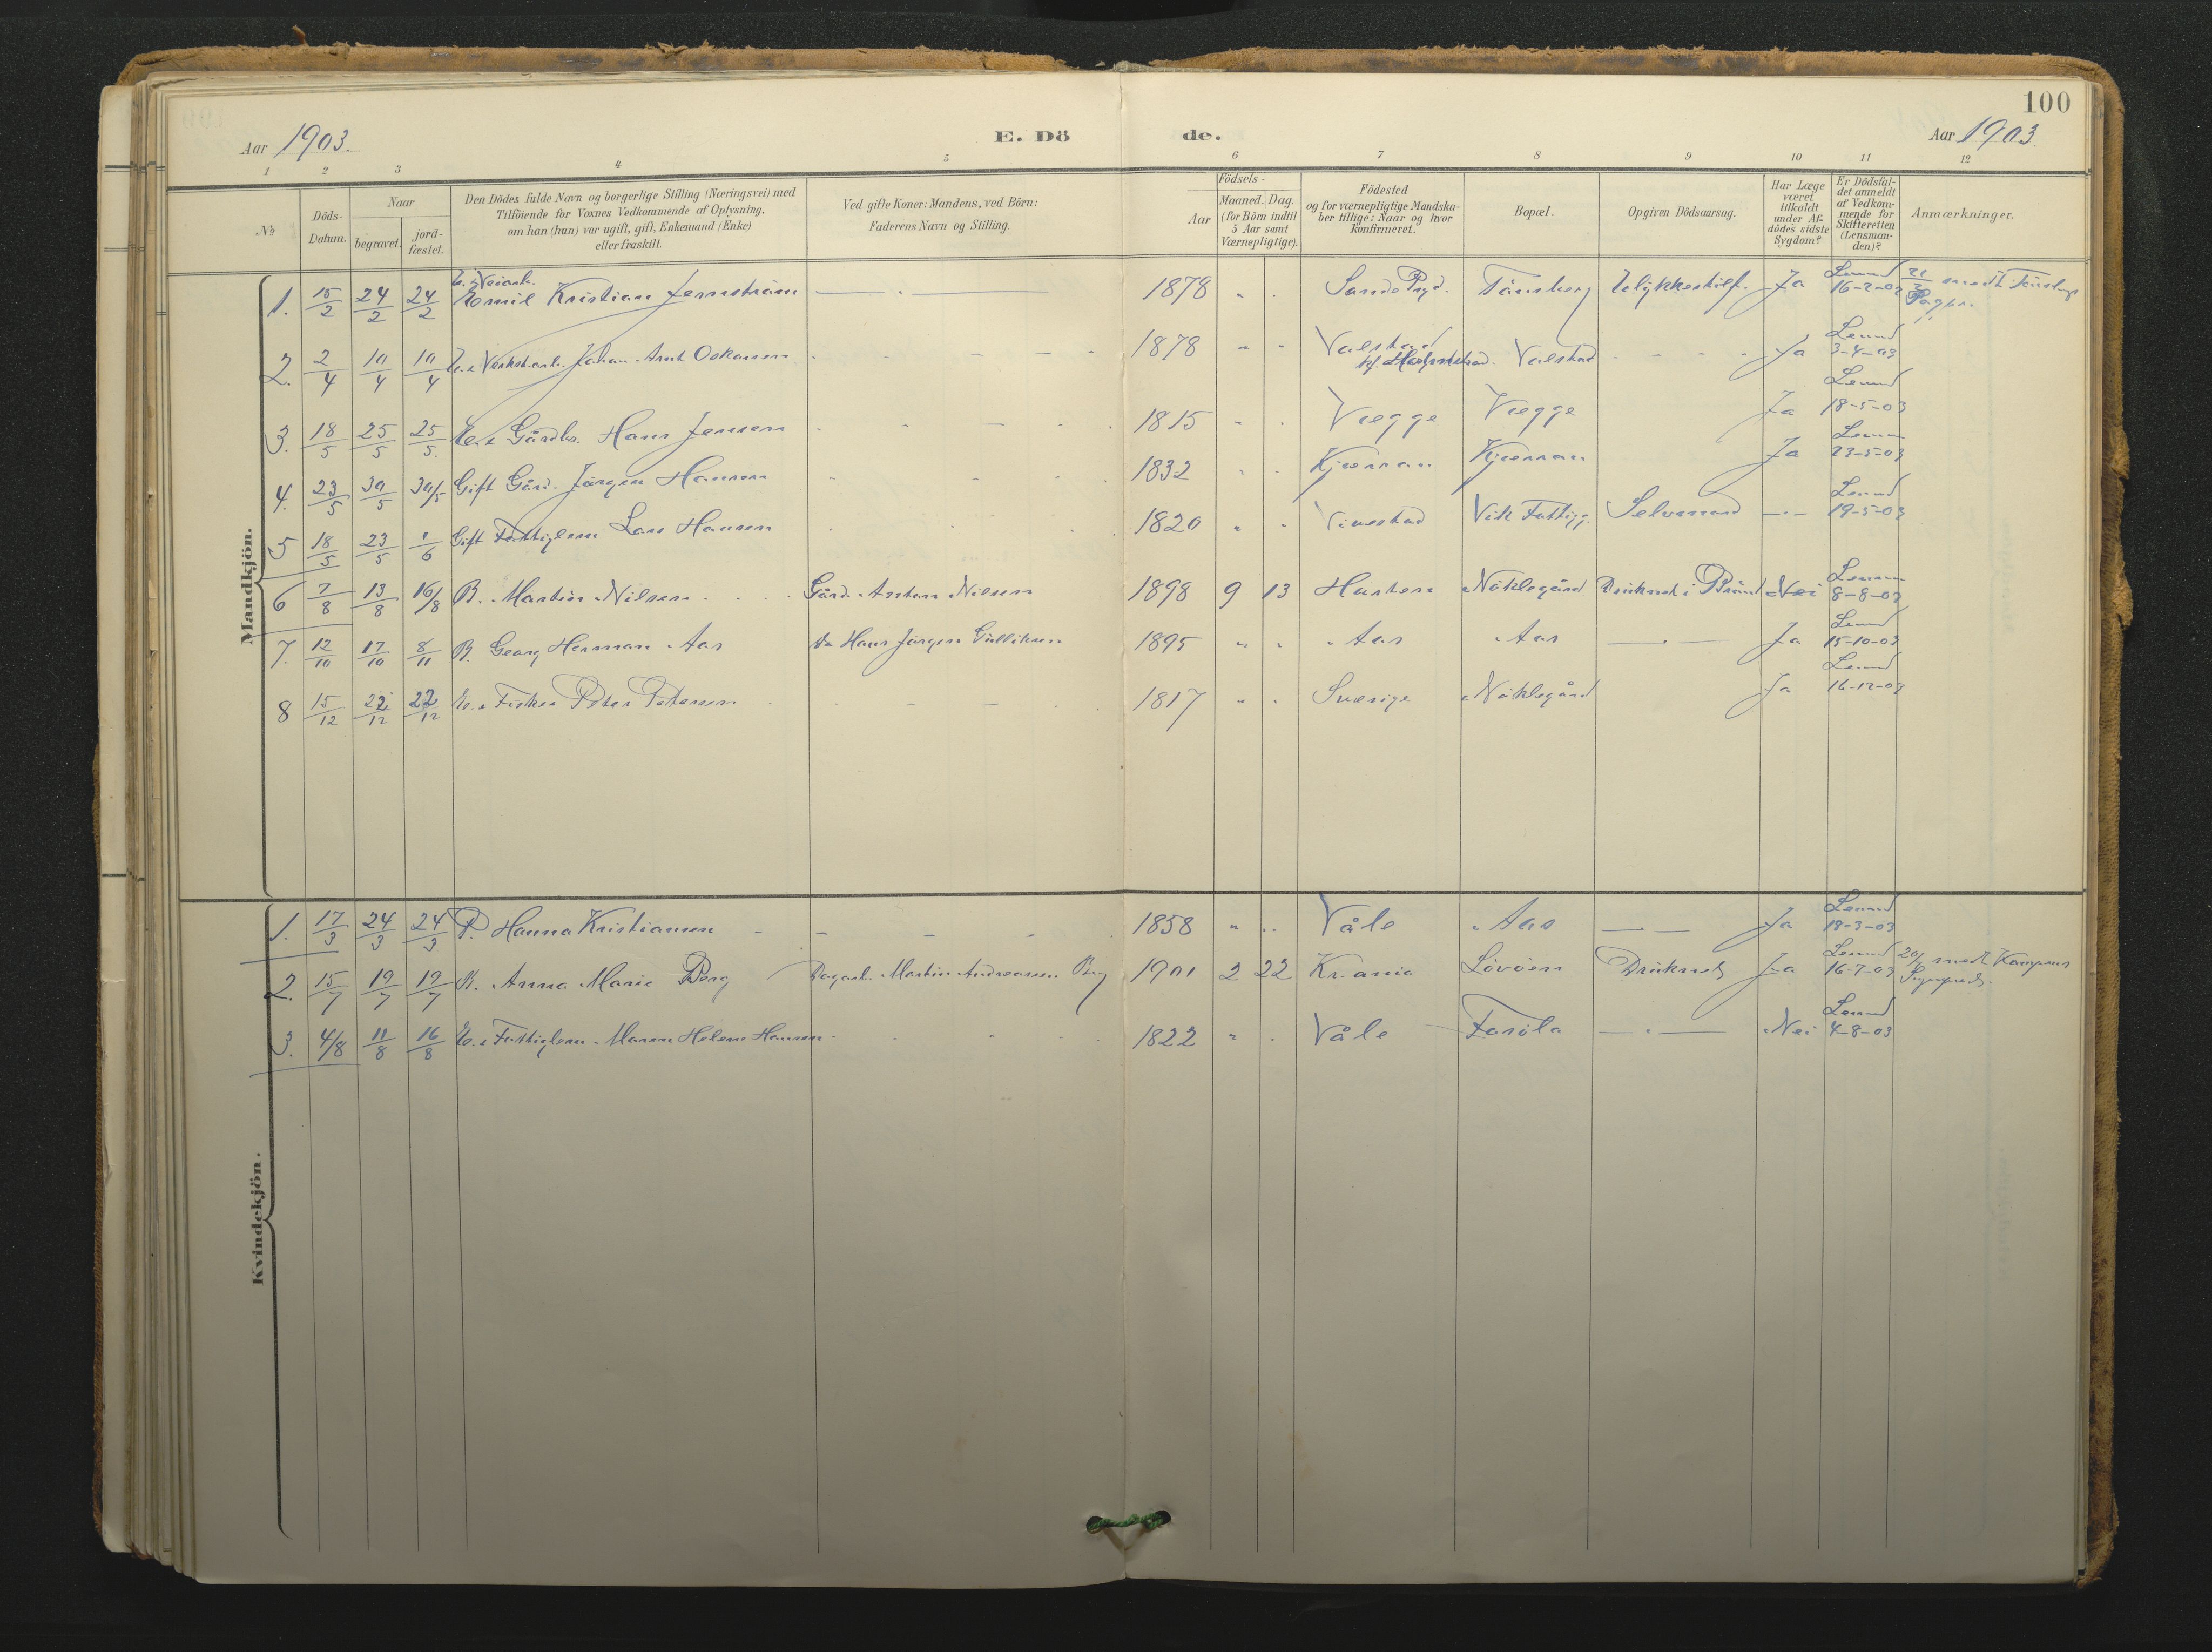 100
Aar 1903.
E. Dö de.
Aar 1903
1 2 3 4 5 6 7 8 9 10 11 12
№
Döds-
Datum.
Naar
begravet.
jord-
fæstet.
Den Dödes fulde Navn og borgerlige Stilling (Næringsvei) med
Tilföiende for Voxnes Vedkommende af Oplysning,
om han (hun) var ugift, gift, Enkemand (Enke)
eller fraskilt.
Ved gifte Koner: Mandens, ved Börn:
Faderens Navn og Stilling.
Födsels-
Aar
Maaned. Dag
(for Börn indtil
5 Aar samt
Værnepligtige).
Födested
og for værnepligtige Mandska-
ber tillige: Naar og hvor
konfirmeret.
Bopæl.
Opgiven Dödsaarsag.
Har Læge
været
tilkaldt
under Af-
dödes sidste
Sygdom?
Er Dödsfal-
det anmeldt
af Vedkom-
mende for
Skifteretten
(Lensman-
den)?
Anmærkninger.
Mandkjön.
1. 15/2 24/2 24/2 Emil Kristian Jernström 1878 " . Sande Tönsberg Ja 16-2-03
2. 2/4 10/4 10/4 Johan Arnt Oskarsen 1878 " - Valstad Valstad Ja 3-4-03
3. 18/5 25/5 25/5 Hans Jensen 1815 " . Vægge Vægge Ja 18-5-03
4. 23/5 30/5 30/5 Gift Gård. Jörgen Hansen 1832 " . Kjærran Kjærran Ja 23-5-03
5 18/5 23/5 1/6 Gift Fattiglem Lars Hansen 1820 " . Vivestad Vik Fattigg. Selvmord 19-5-03
6 7/8 13/8 16/8 B. Martin Nilsen Gård. Anton Nilsen 1898 9 13 Nöklegård Druknet i Brönd Nei 8-8-03
7. 12/10 17/10 8/11 B. Georg Herman Aas Hans Jörgen Gulliksen 1895 " . Aas Aas Ja 15-10-03
8 15/12 22/12 22/12 Fisker Peter Petersen 1817 " . Sverige Nöklegård Ja 16-12-03
Kvindekjön.
1. 17/3 24/3 24/3 P. Hanna Kristiansen 1858 " .. Våle Aas Ja 18-3-03
2. 15/7 19/7 19/7 B. Anna Marie Berg Dagarb. Martin Andreassen Berg 1901 2 22 Kr.ania Lövöen Druknet Ja 16-7-03 20/7 medt Kampens
3. 4/8 11/8 16/8 Fattiglem Maren Helene Hansen 1822 " . Våle Nei 4-8-03